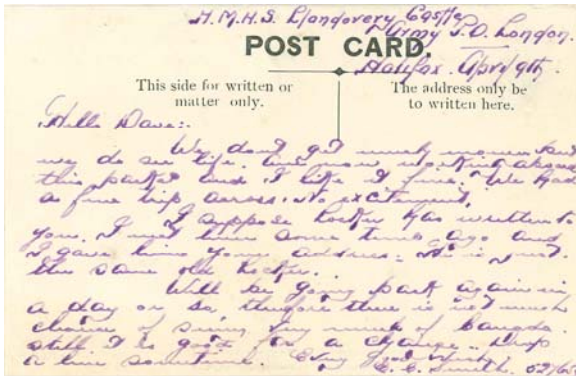 H.M.H.S. Llandovery Castle
Army P.O. London.
POST CARD.
Halifax. April 9th.
This side for written or
matter only.
The address only be
to written here.
Hello Dave:-
We don't get much money but
we do see life. Am now workin aboard
this packet and I like it fine. We had
a fine trip across. No excitement.
I suppose has written to
you. I met him some time ago and
I gave him your address. He is just
the same old
Will be going back again in
a day or so, therefore there is not much
chance of seeing very much of Canada.
still it is good for a change. Drop
a line sometime. Every Good Wish,
E. E. Smith.